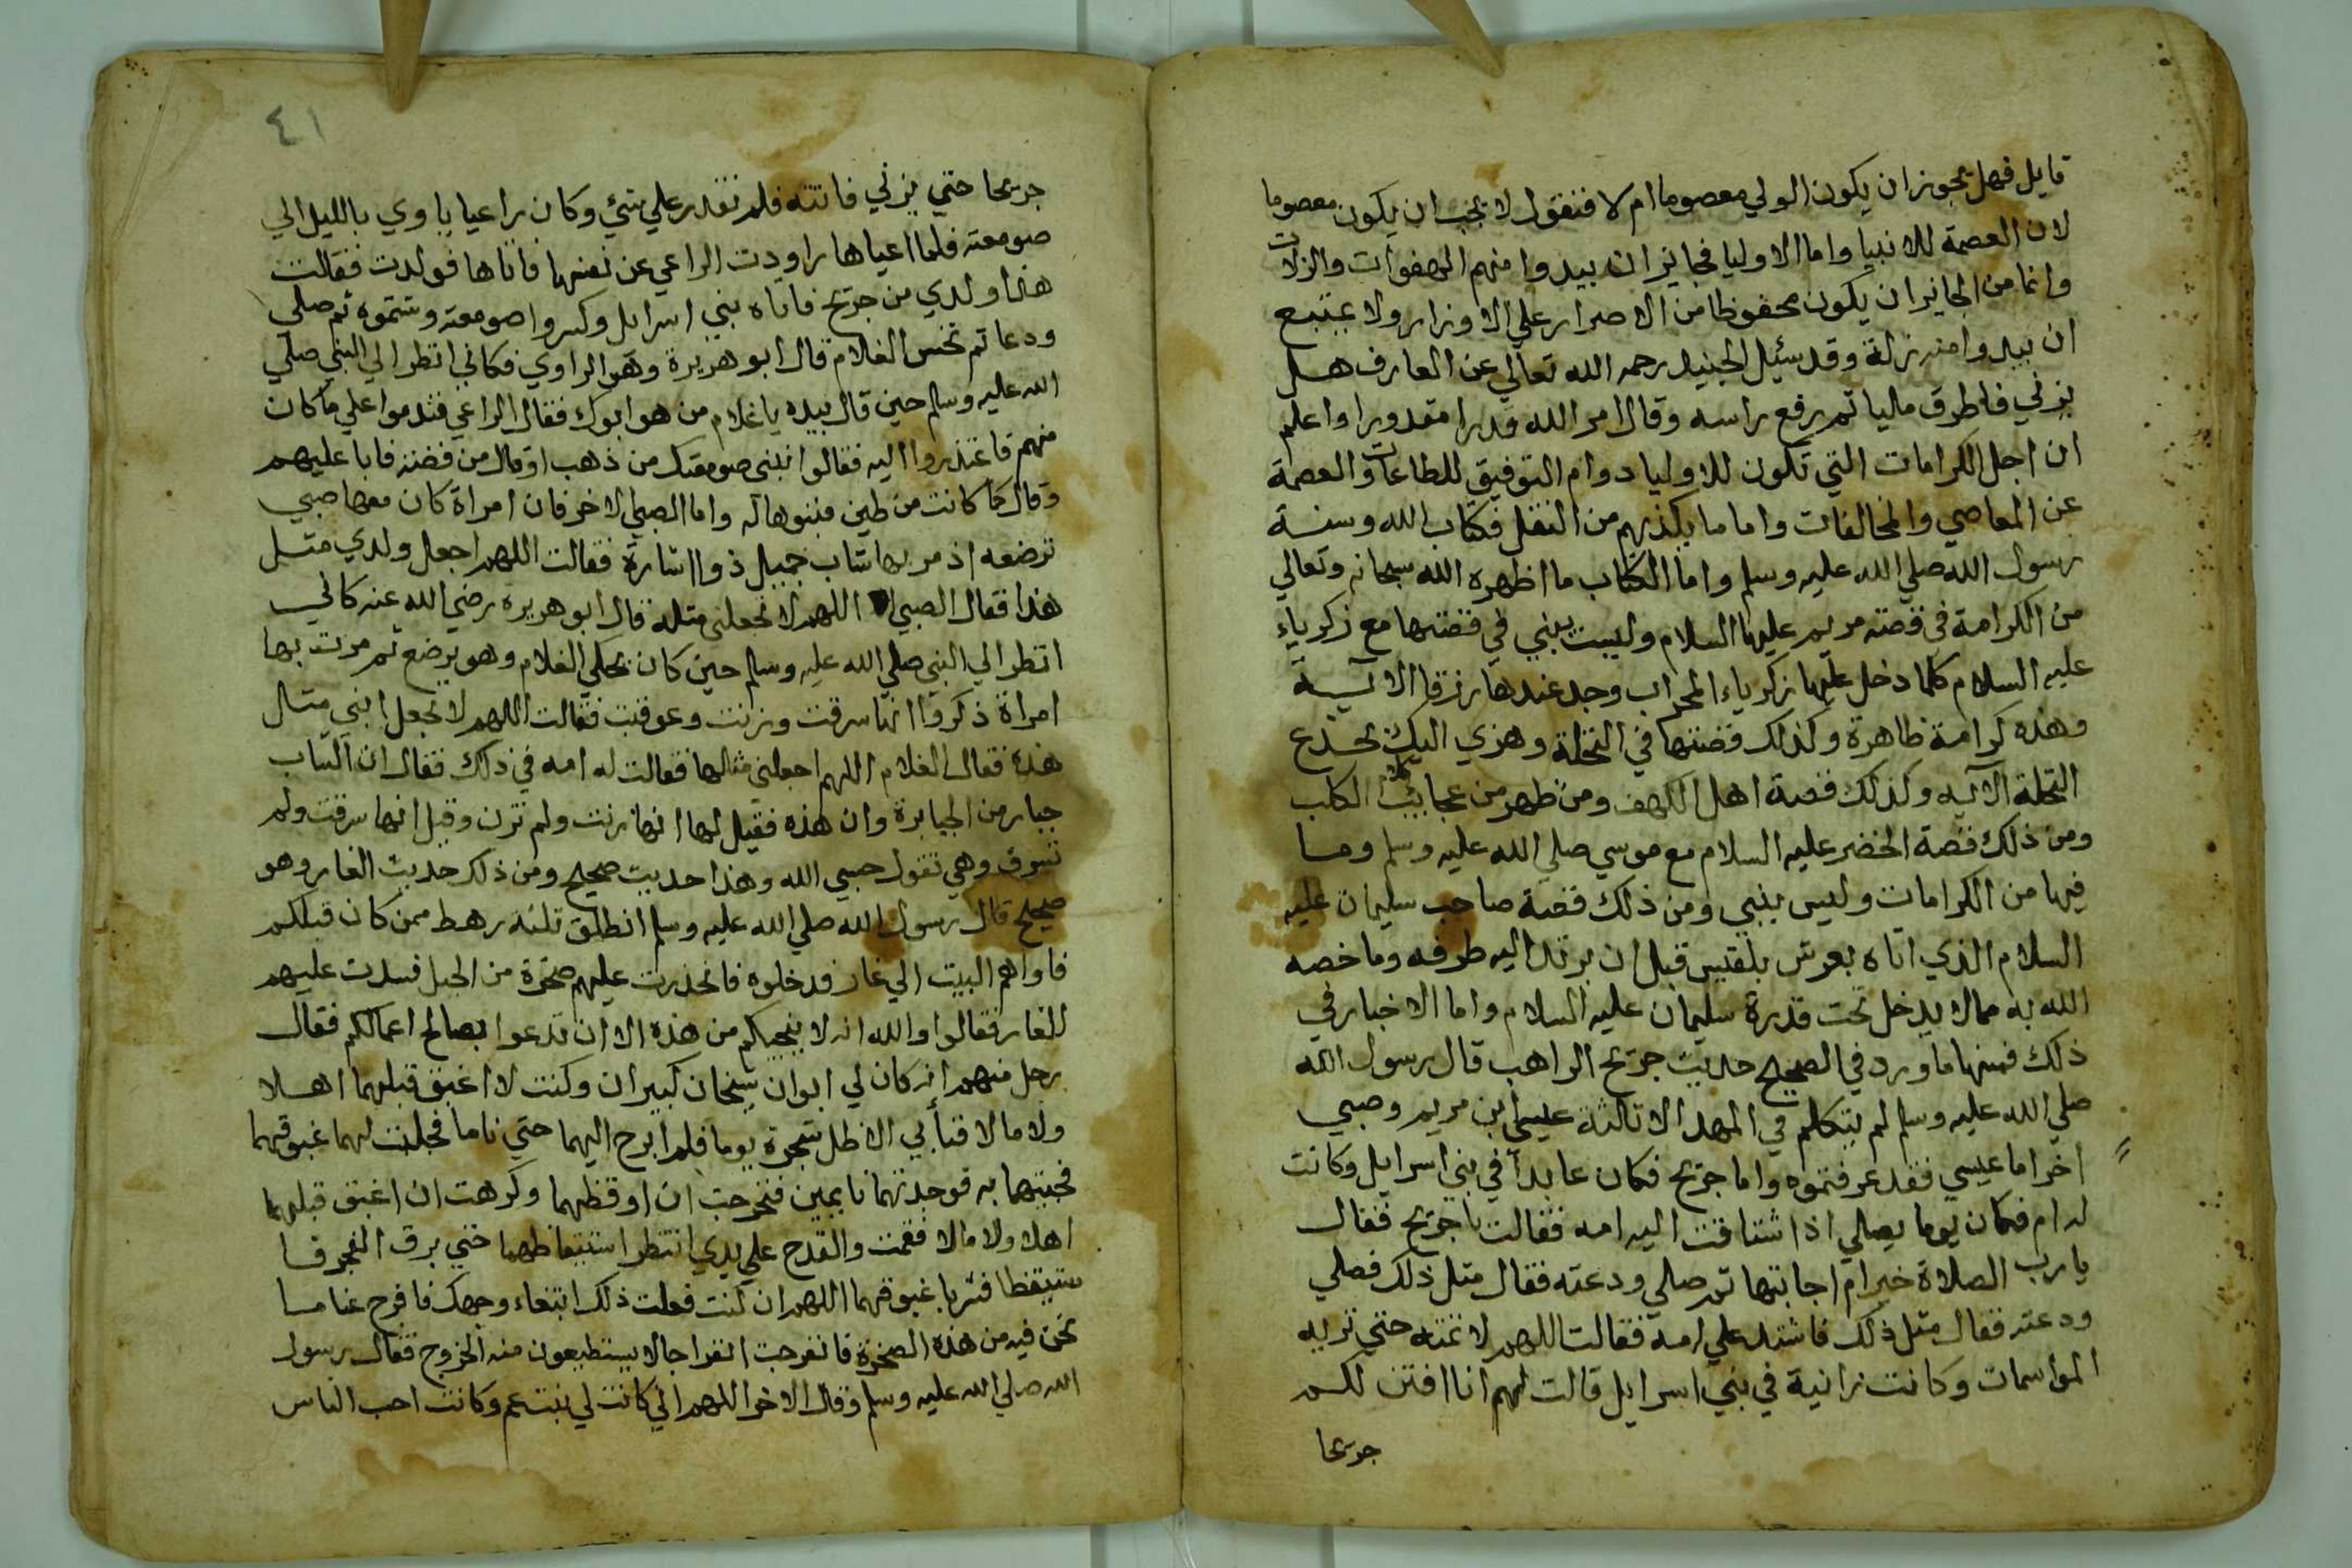 قايل فهل يجوز ان يكون الولي معصوما ام لا فنقول لا يجب ان يكون معصوما
لان العصمة للانبيا واما الاوليا فجايز ان يبدوا منهم الهفوات والزلات
وانما من الجايز ان يكون محفوظا من الاصرار علي الاوزار ولا يمتنع
ان يبدوا منه زلة وقد سئيل الجنيد رحمه الله تعالي عن العارف هل
يزني فاطرق مليا ثم رفع راسه وقال امر الله قدرا مقدورا واعلم
ان اجل الكرامات التي تكون للاوليا دوام التوفيق للطاعات والعصمة
عن المعاصي والمخالفات واما ما يكذبهم من النقل فكتاب الله وسنة
رسول الله صلي الله عليه وسلم واما الكتاب ما اظهره الله سبحانه وتعالي
من الكرامة في قصته مريم عليها السلام وليست بنبي في قصتها مع زكرياء
عليه السلام كلما دخل عليها زكرياء المحراب وجد عندها رزقا الاية
وهذه كرامة ظاهرة وكذلك قصتها في النخلة وهزي اليك بجذع
النخلة الآيه وكذلك قصة اهل الكهف ومن ظهر من عجايب الكلب
ومن ذلك قصة الخضر عليه السلام مع موسي صلي الله عليه وسلم وما
فيها من الكرامات وليس بنبي ومن ذلك قصة صاحب سليمان عليه
السلام الذي اتاه بعرش بلقيس قبل ان يرتد اليه طرفه وما خصه
الله به مما لا يدخل تحت قدرة سليمان عليه السلام واما الاخبار في
ذلك فمنها ما ورد في الصحيح حديث جريج الراهب قال رسول الله
صلي الله عليه وسلم لم يتكلم في المهد الا ثالثة عيسي ابن مريم وصبي
اخر اما عيسي فقد عرفتموه واما جريج فكان عابدا في بني اسرايل وكانت
له ام فكان يوما يصلي اذ اشتاقت اليه امه فقالت يا جريج فقال
يارب الصلاة خير ام اجابتها ثم صلي ودعته فقال مثل ذلك فصلي
ودعته فقال مثل ذلك فاشتد علي امه فقالت اللهم لا تمته حتي تريه
المواسمات وكانت زانية في بني اسرايل قالت لهم انا افتن لكم
جريجا
٤١
جريجا حتي يزني فاتته فلم تقدر علي شئ وكان راعيا ياوي بالليل الي
صومعته فلما اعياها راودت الراعي عن نفسها فاتاها فولدت فقالت
هذا ولدي من جريج فاتاه بني اسرايل وكسروا صومعته وشتموه ثم صلي
ودعا ثم نخس الغلام قال ابو هريرة وهو الراوي فكاني انظر الي النبي صلي
الله عليه وسلم حين قال بيده يا غلام من هو ابوك فقال الراعي فندموا علي ما كان
منهم فاعتذروا اليه فقالوا نبني صومعتك من ذهب او قال من فضة فابا عليهم
وقال كما كانت من طين فبنوها له واما الصبي الاخر فان امراة كان معها صبي
ترضعه اذ مر بها شاب جميل ذو اشارة فقالت اللهم اجعل ولدي مثل
هذا فقال الصبي اللهم لا تجعلني مثله قال ابو هريره رضي الله عنه كاني
انظر الي النبي صلي الله عليه وسلم حين كان يحكي الغلام وهو يرضع ثم مرت بها
امراة ذكروا انها سرقت وزنت وعوقبت فقالت اللهم لا تجعل ابني مثال
هذه فقال الغلام اللهم اجعلني مثالها فقالت له امه في ذلك فقال ان الشاب
جبار من الجبابرة وان هذه فقيل لها انها زنت ولم تزن وقيل انها سرقت ولم
تسرق وهي تقول حسبي الله وهذا حديث صحيح ومن ذلك حديث الغار وهو
صحيح قال رسول الله صلي الله عليه وسلم انطلق ثلثة رهط ممن كان قبلكم
فاواهم البيت الي غار فدخلوه فانحدرت عليهم صخرة من الجبل فسدت عليهم
الغار فقالوا والله انه لا ينجيكم من هذه الا ان تدعوا بصالح اعمالكم فقال
رجل منهم انه كان لي ابوان شيخان كبيران وكنت لا اغبق قبلهما اهلا
ولا مالا فنأبي الا ظل شجرة يوما فلم ابرح اليهما حتي ناما فحلبت لهما غبوقهما
فجيتهما به فوجدتهما نايمين فتحرجت ان اوقظهما وكرهت ان اغبق قبلهما
اهلا ولا مالا فقمت والقدح علي يدي انتظر استيقاظهما حتي برق الفجر فا
ستيقظا فشربا غبوقهما اللهم ان كنت فعلت ذلك ابتغاء وجهك فافرج عنا ما
نحن فيه من هذه الصخرة فانفرجت انفراجا لا يستطيعون منه الخروج فقال رسول
الله صلي الله عليه وسلم وقال الاخر اللهم اني كانت لي بنت عم وكانت احب الناس